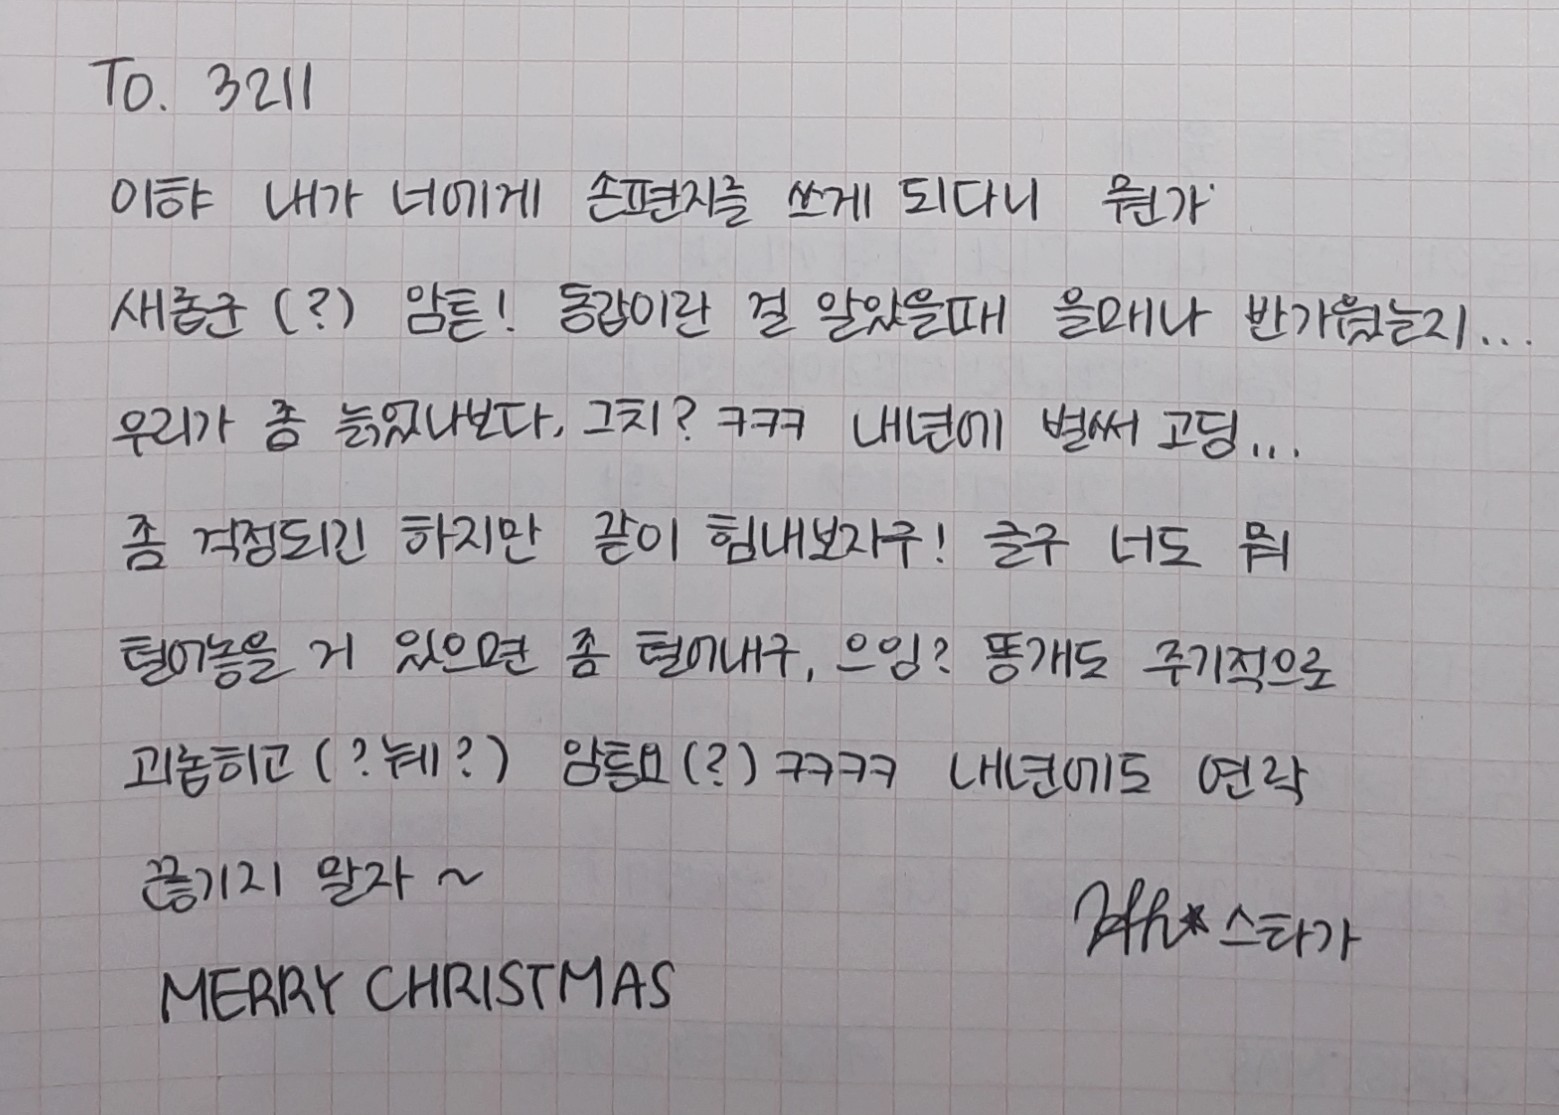 To. 3211
이햐 내가 너에게 손편지를 쓰게 되다니 뭔가
새롭군 (?) 암튼! 동갑이란 걸 알았을때 을매나 반가웠는지...
우리가 좀 늙었나보다, 그치? ㅋㅋㅋ 내년에 벌써 고딩...
좀 걱정되긴 하지만 같이 힘내보자구! 글구 너도 뭐
털어놓을 거 있으면 좀 털어내구, 으잉? 똥개도 주기적으로
괴롭히고 (?눼?) 암튼 (?) ㅋㅋㅋㅋ 내년에도 연락
끊기지 말자 ~
스타가
MERRY CHRISTMAS